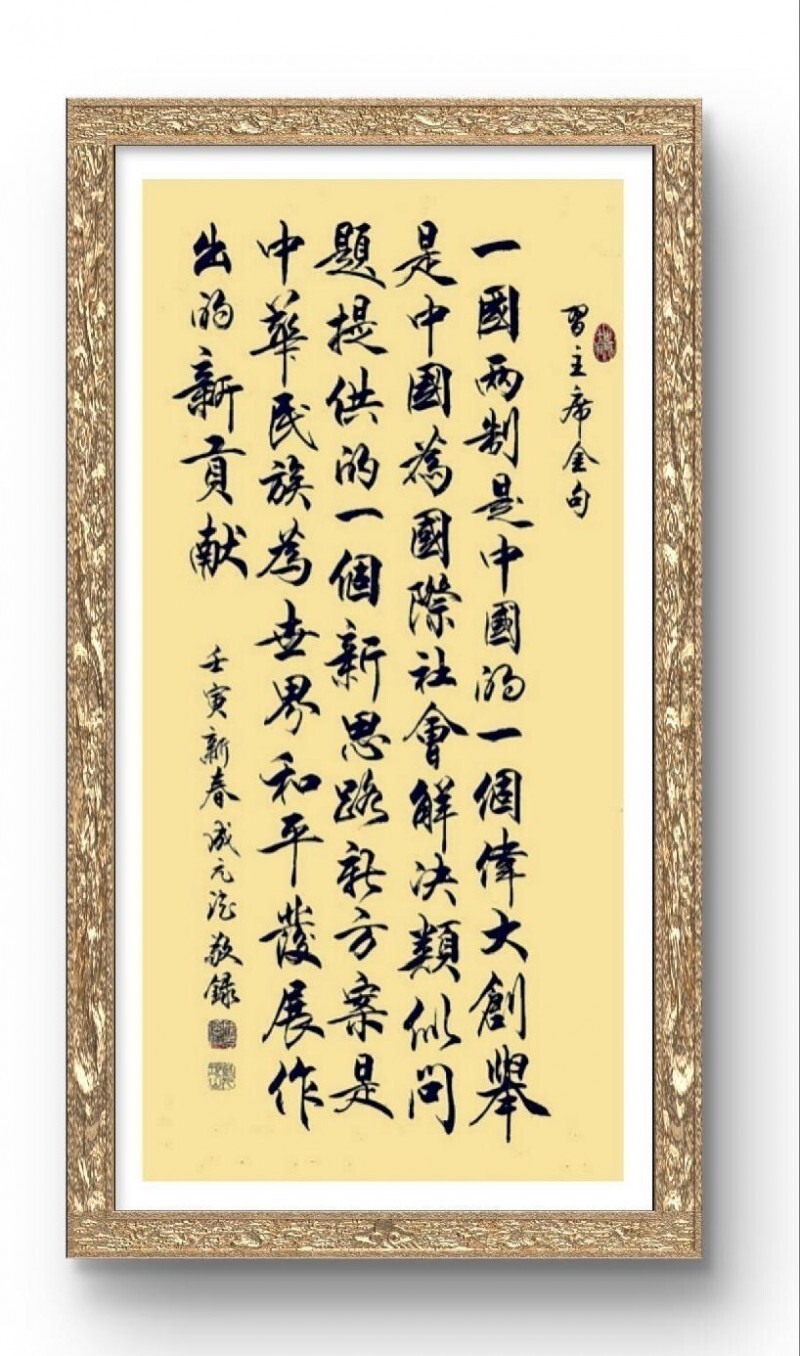 習主席金句
一國两制是中國的一個偉大創舉
是中國為國際社會解决類似問
題提供的一個新思路新方案是
中華民族為世界和平發展作
出的新貢献
壬寅新春成元 敬録